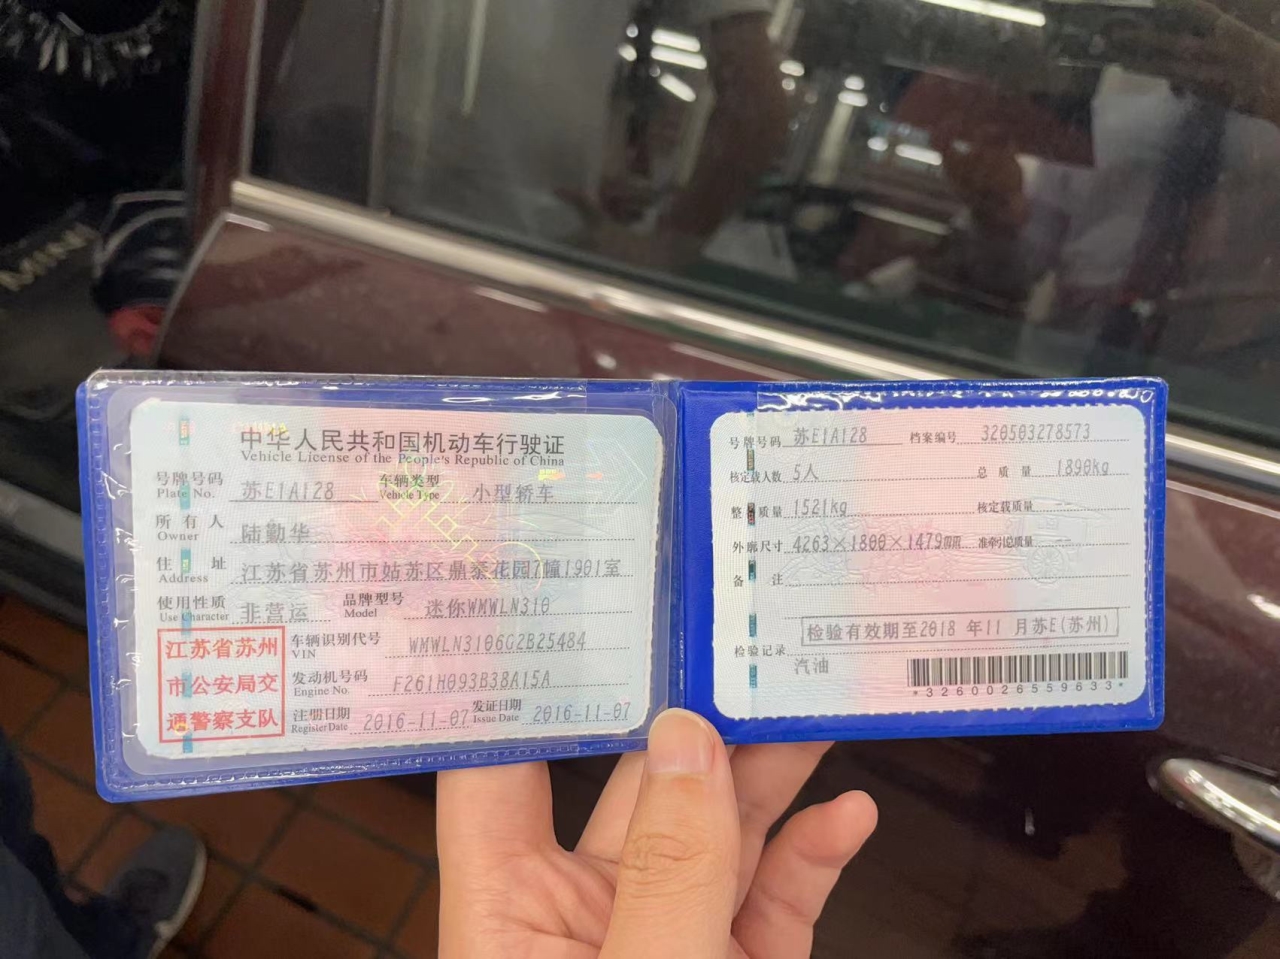 中华人民共和国机动车行驶证
Vehicle License of the People's Republic of China
号牌号码 Plate No. 苏E1A128 车辆类型 Vehicle Type 小型轿车
所有人 Owner 陆勤华
住址 Address 江苏省苏州市姑苏区鼎泰花园7幢1901室
使用性质 Use Character 非营运 品牌型号 Model 迷你WMWLN310
江苏省苏州
市公安局交
通警察支队
车辆识别代号 VIN WMWLN3106G2B25484
发动机号码 Engine No. F261H093B38A15A
注册日期 Register Date 2016-11-07 发证日期 Issue Date 2016-11-07
号牌号码 苏E1A128 档案编号 320503278573
核定载人数 5人 总质量 1890kg
整备质量 1521kg 核定载质量 --
外廓尺寸 4263×1800×1479mm 准牵引总质量 --
备注
检验有效期至2018年11月苏E(苏州)
检验记录
汽油
*3260026559633*
MINI